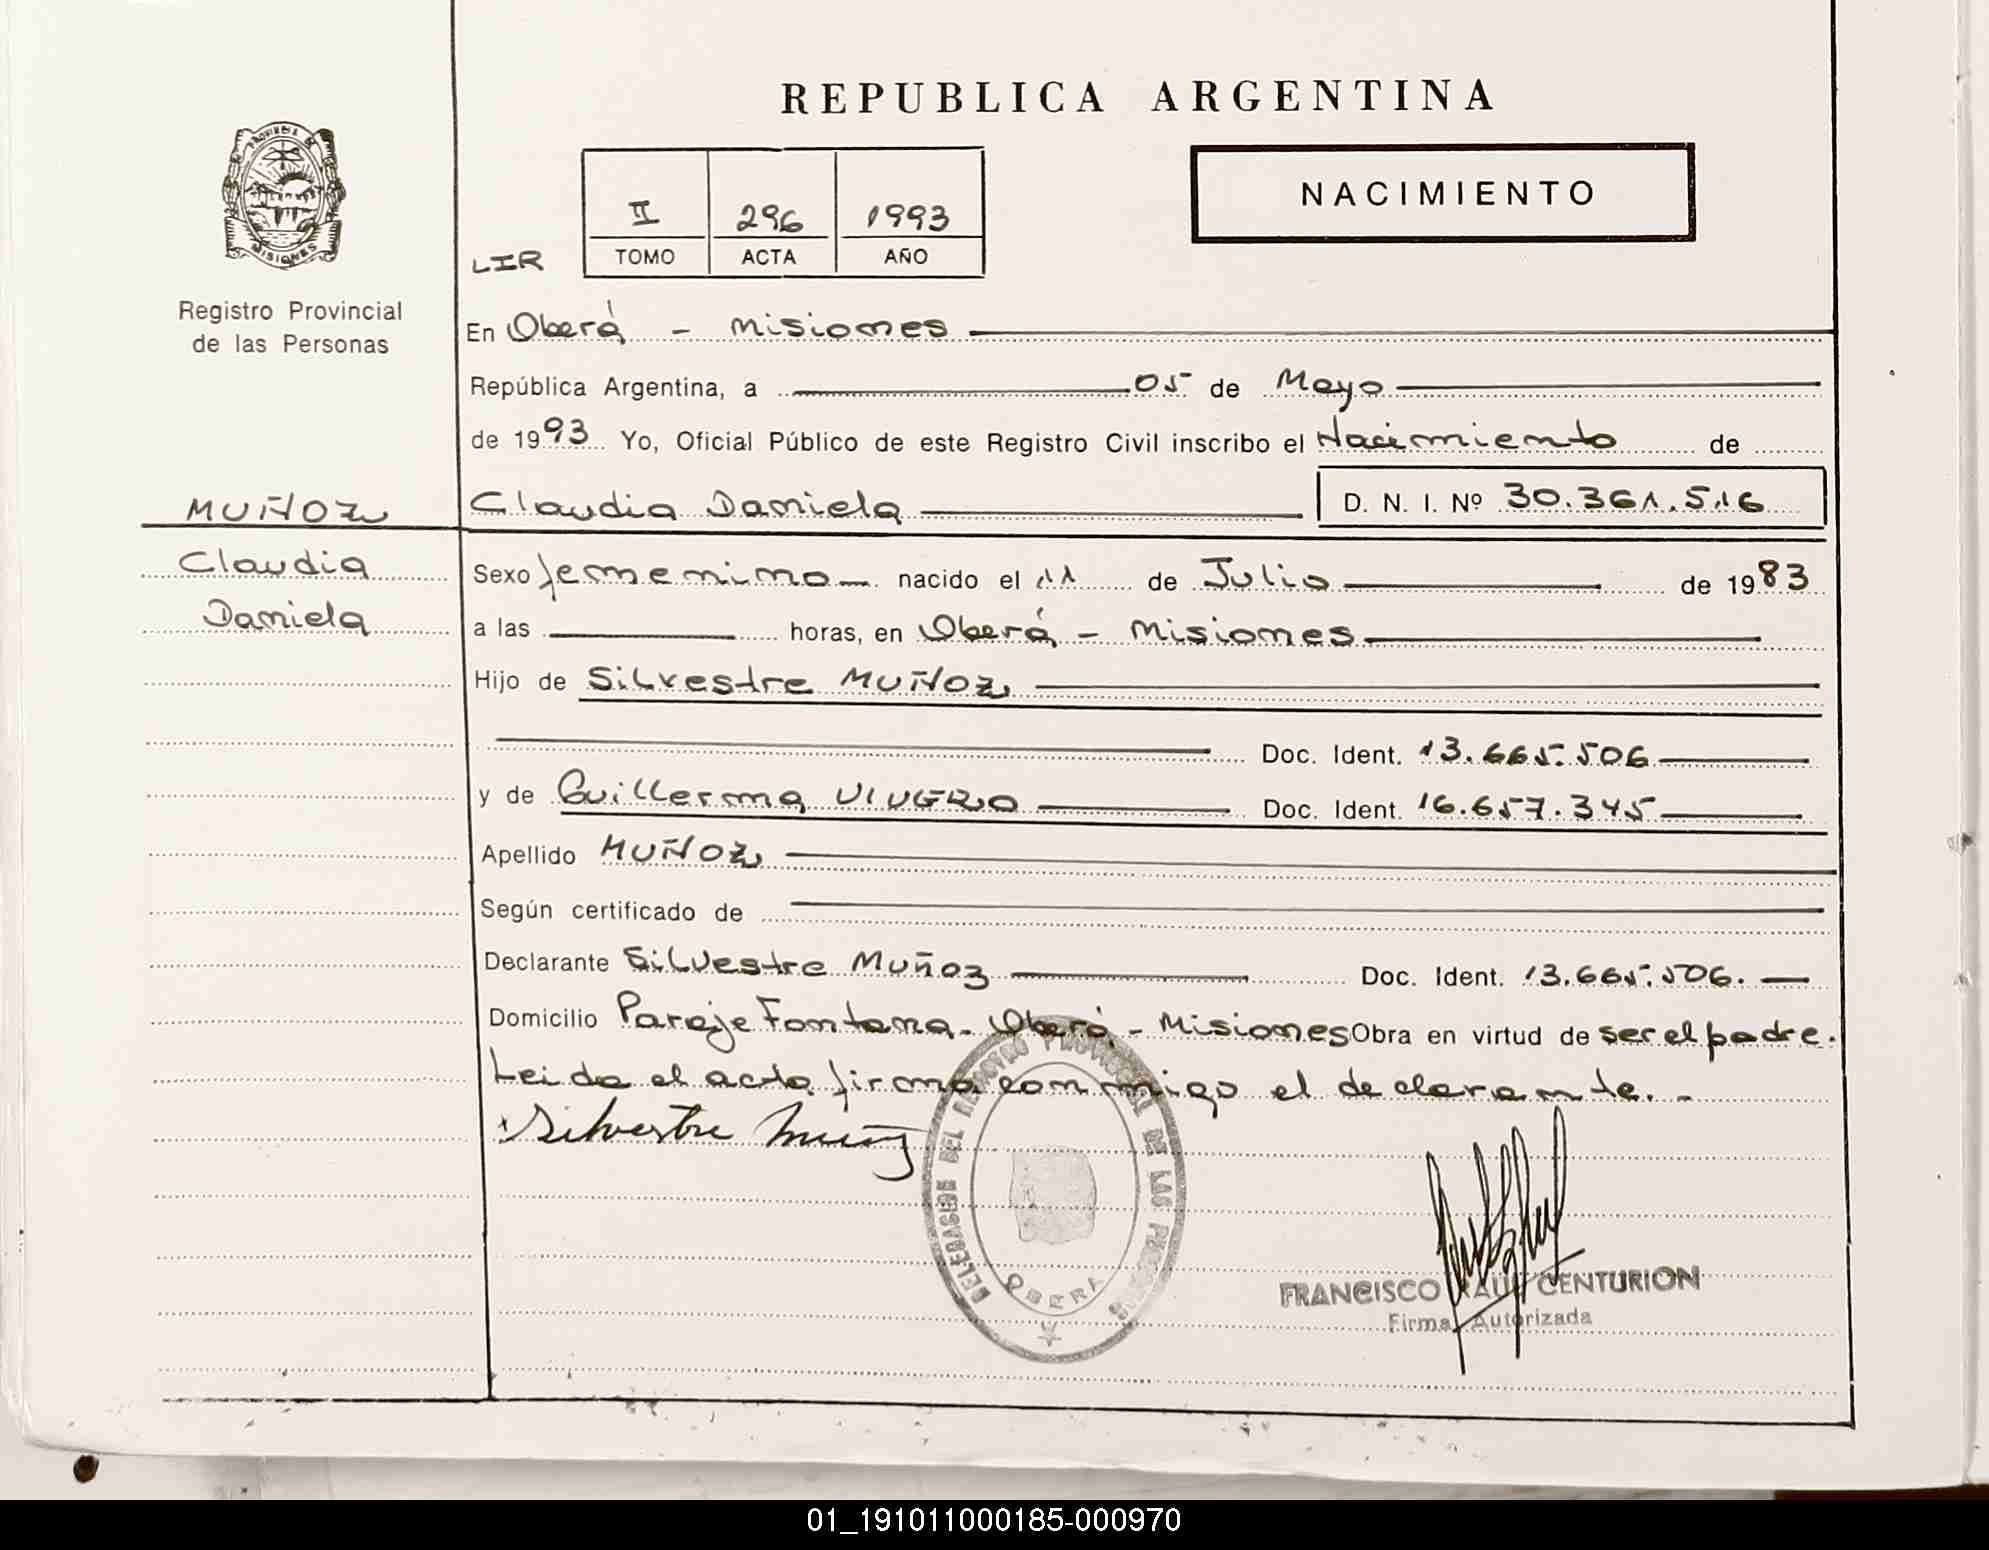 REPUBLICA ARGENTINA
PROVINCIA DE
MISIONES
Registro Provincial
de las Personas
LIR
II 296 1993
TOMO ACTA AÑO
NACIMIENTO
En Oberá - Misiones
República Argentina, a 05 de Mayo
de 1993 Yo, Oficial Público de este Registro Civil inscribo el Nacimiento de
MUÑOZ
Claudia Daniela D. N. I. Nº 30.361.516
Claudia
Daniela
Sexo femenino nacido el 11 de Julio de 1983
a las horas, en Oberá - Misiones
Hijo de Silvestre MUÑOZ
Doc. Ident. 13.665.506
y de Guillerma Doc. Ident. 16.657.345
Apellido MUÑOZ
Según certificado de
Declarante Silvestre Muñoz Doc. Ident. 13.665.506.
Domicilio Paraje Fontana - Oberá - Misiones Obra en virtud de ser el padre.
Leida el acta firma conmigo el declarante. -
Silvestre Muñoz
DELEGACION DEL REGISTRO PROVINCIAL DE LAS PERSONAS
OBERA
FRANCISCO RAUL CENTURION
Firma Autorizada
01_191011000185-000970